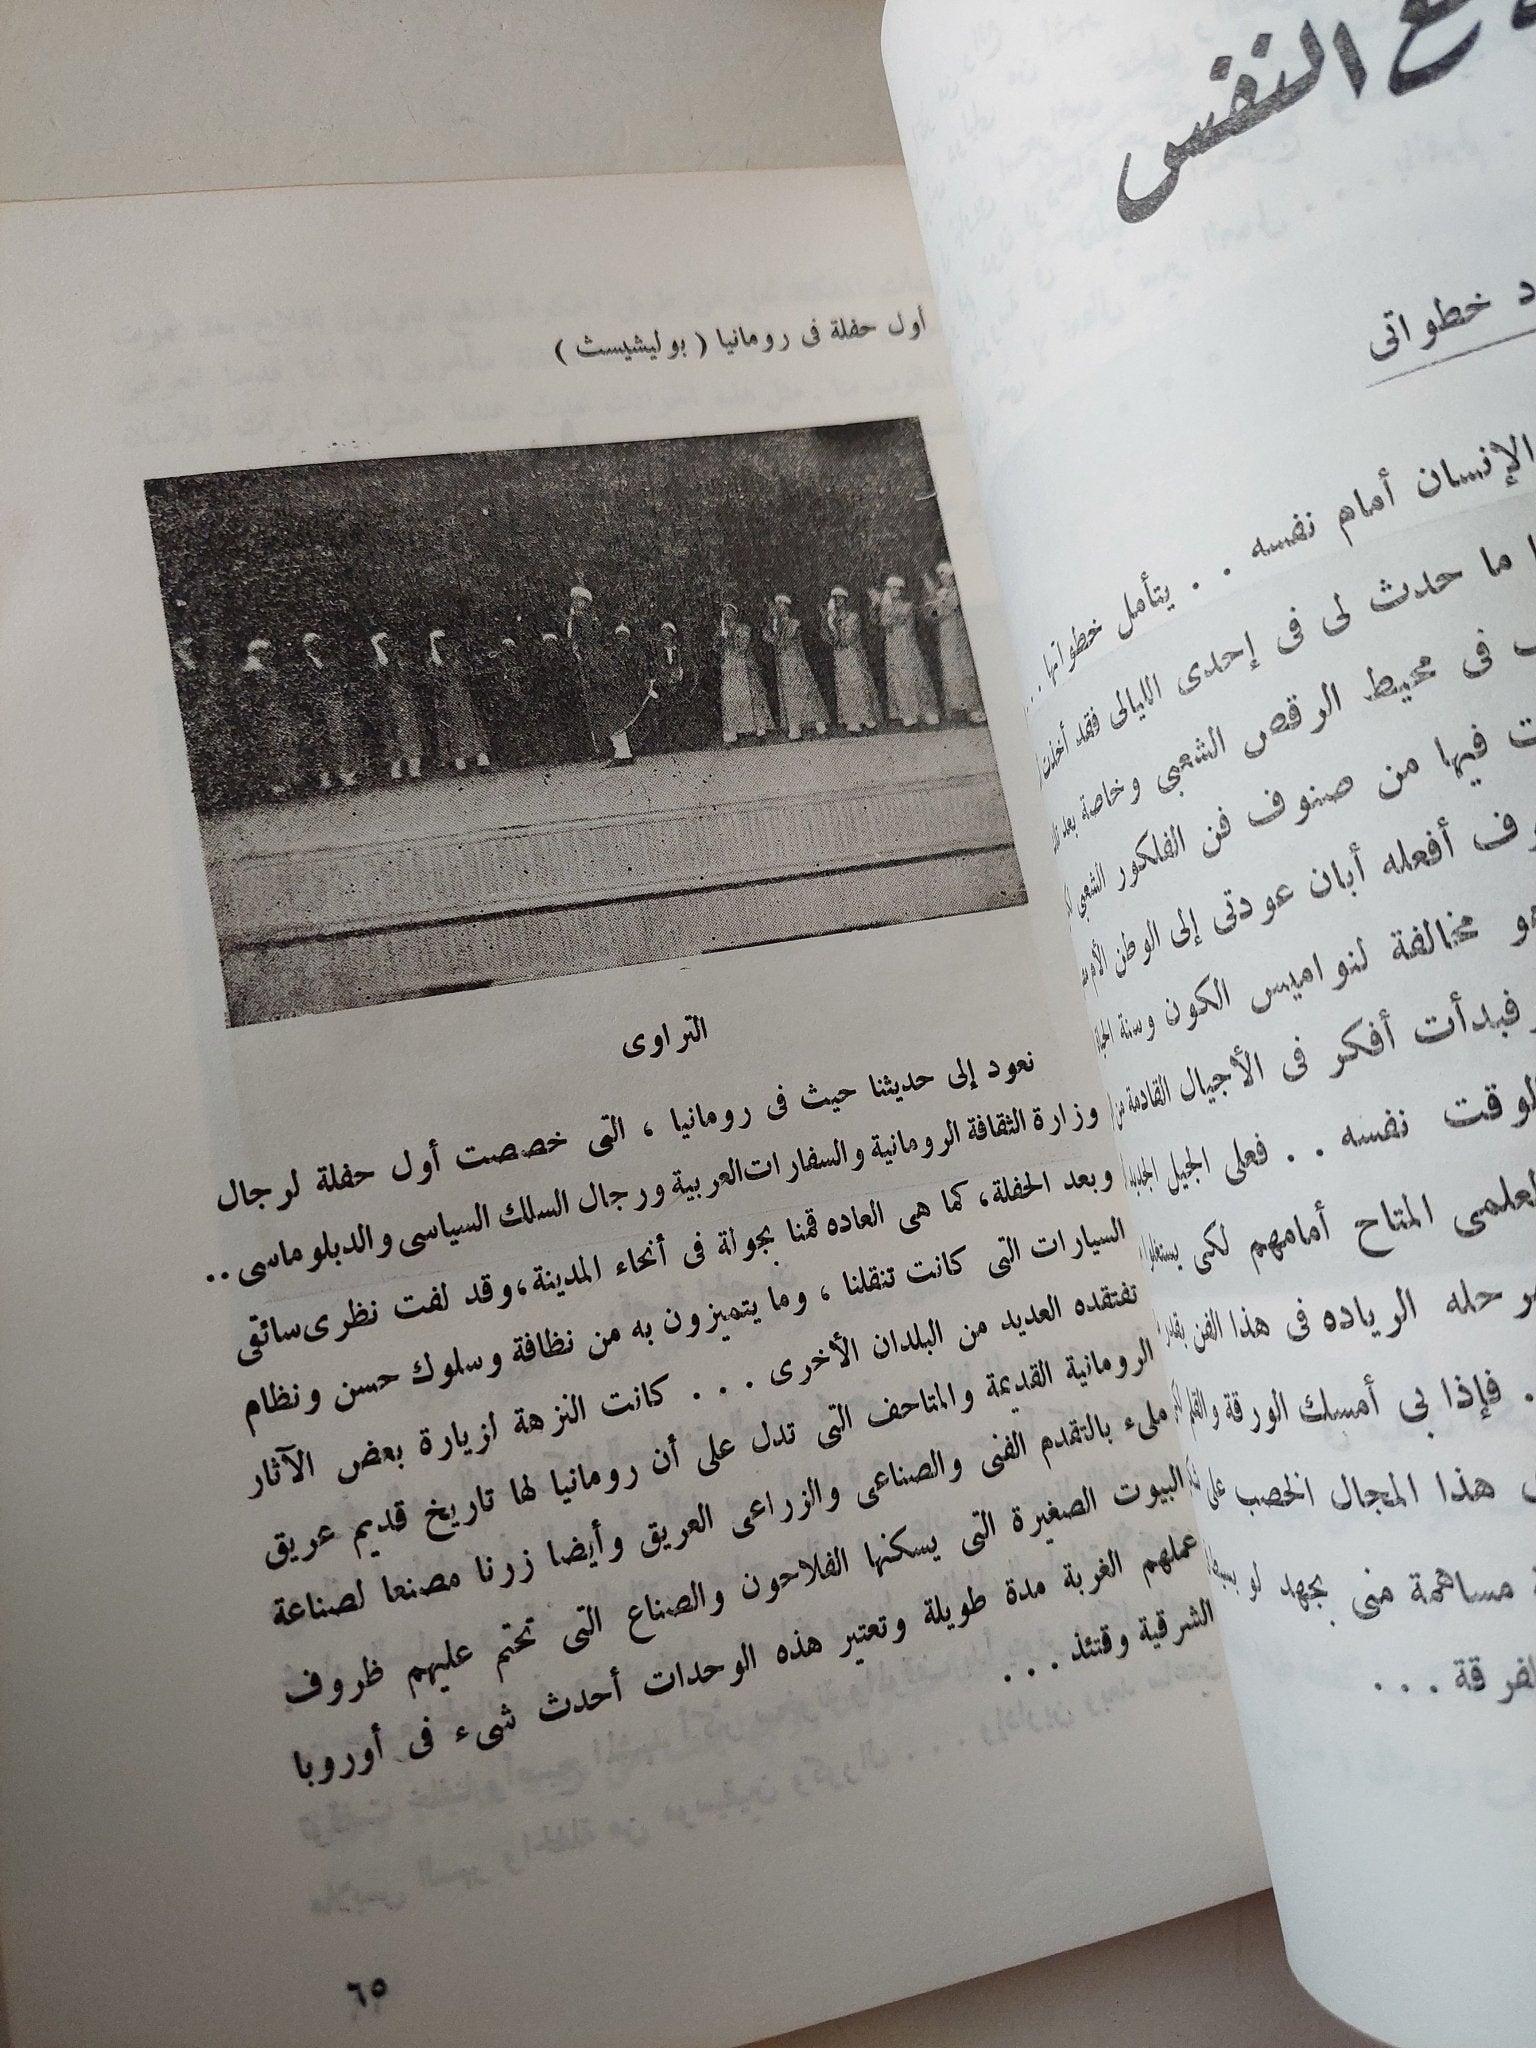 أول حفلة فى رومانيا ( بوليشيست )
التراوى
نعود إلى حديثنا حيث فى رومانيا ، التى خصصت أول حفلة لرجال
وزارة الثقافة الرومانية والسفارات العربية ورجال السلك السياسى والدبلوماسى . .
وبعد الحفلة ، كما هى العاده قمنا بجولة فى أنحاء المدينة ، وقد لفت نظرى سائقى
السيارات التى كانت تنقلنا ، وما يتميزون به من نظافة وسلوك حسن ونظام
تفتقده العديد من البلدان الأخرى . . . كانت النزهة لزيارة بعض الآثار
الرومانية القديمة والمتاحف التى تدل على أن رومانيا لها تاريخ قديم عريق
ملىء بالتقدم الفنى والصناعى والزراعى العريق وأيضا زرنا مصنعا لصناعة
البيوت الصغيرة التى يسكنها الفلاحون والصناع التى تحتم عليهم ظروف
عملهم الغربة مدة طويلة وتعتبر هذه الوحدات أحدث شىء فى أوروبا
الشرقية وقتئذ . . .
٦٥
النفس
خطواتى
الإنسان أمام نفسه . . يتأمل خطواتها . .
ما حدث لى فى إحدى الليالى فقد أخلت
فى محيط الرقص الشعبى وخاصة بعد
فيها من صنوف فن الفلكور الشعبى
أفعله أبان عودتى إلى الوطن الأم
مخالفة لنواميس الكون وسنة
فبدأت أفكر فى الأجيال القادمة من
الوقت نفسه . . فعلى الجيل
العلمى المتاح أمامهم لكى
الرياده فى هذا الفن بقدر
. فإذا بى أمسك الورقة والقلم
هذا المجال الخصب على
مساهمة منى بجهد لو
الفرقة . . .